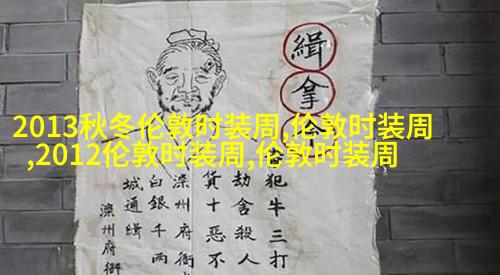 2013秋冬伦敦时装周,伦敦时装周
,2012伦敦时装周,伦敦时装周
緝拿令
犯牛三打
劫舍殺人
貨十惡不
滦州府衙
白銀千两
城通緝
滦州府衙